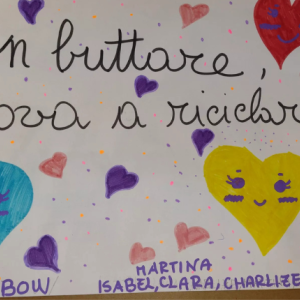 n buttare,
ova a riciclar
BOW
MARTINA
ISABEL, CLARA, CHARLIZE